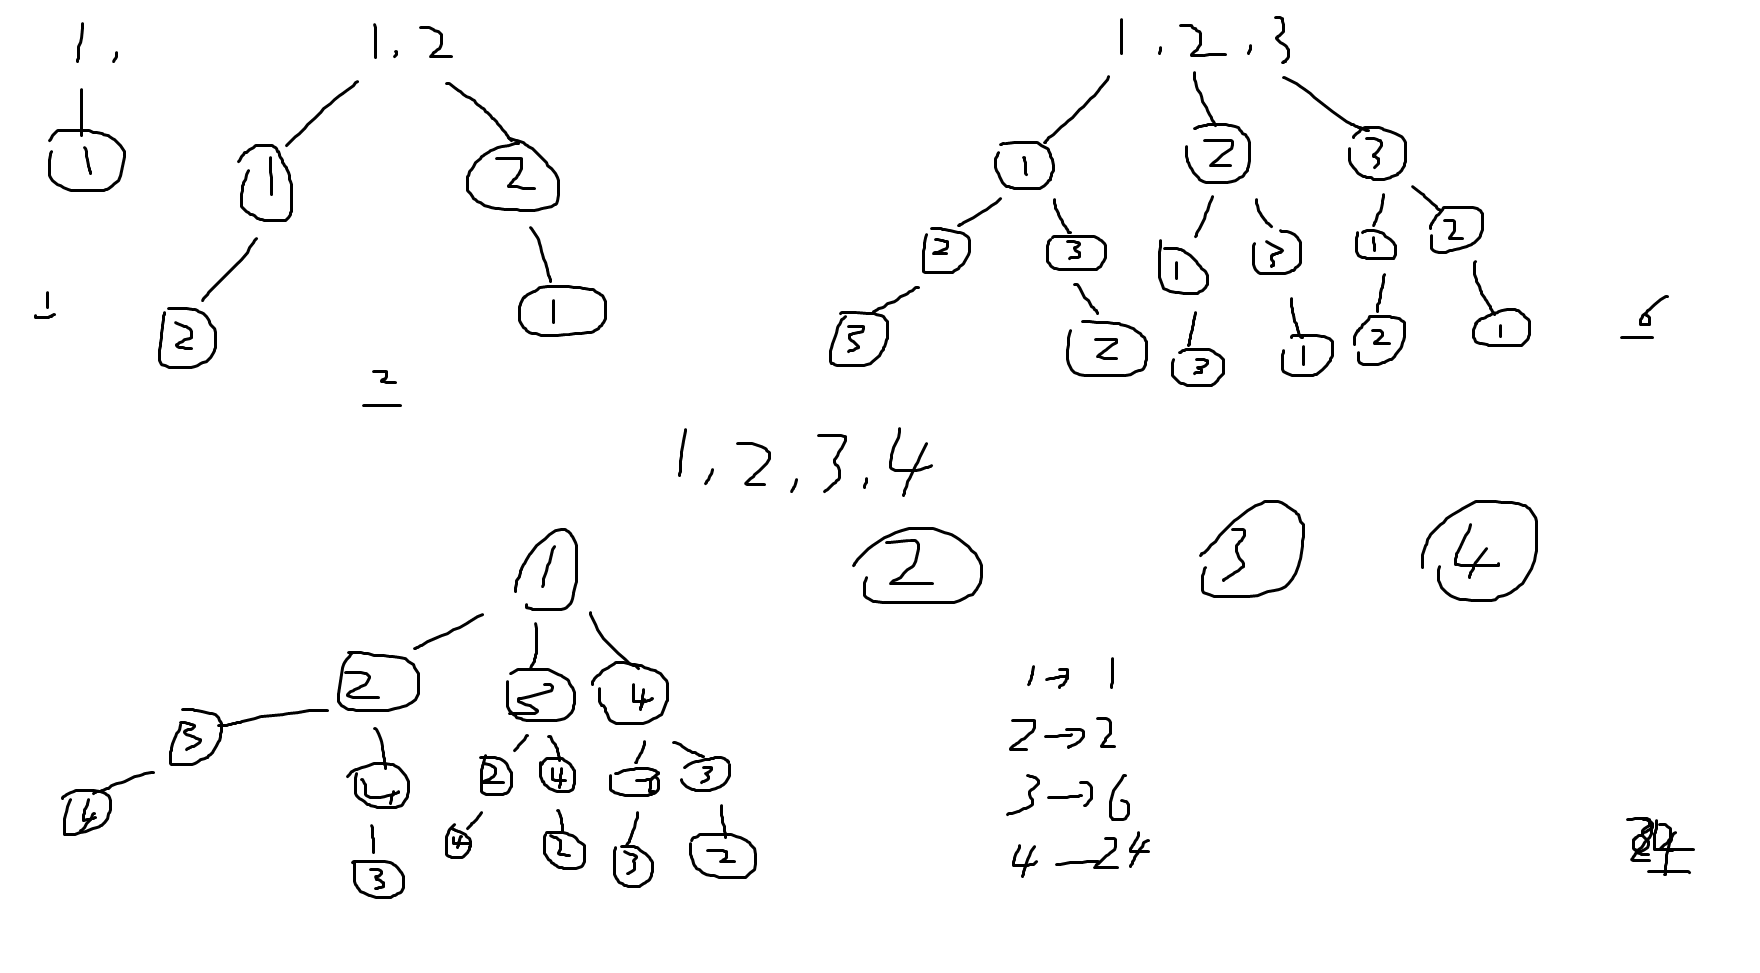 1,
1
1
1, 2
1 2
2 1
2
1, 2, 3
1 2 3
2 3 1 3 1 2
3 2 3 1 2 1
6
1, 2, 3, 4
1 2 3 4
2 4
3 4 2 4 3
4 3 4 2 3 2
1 → 1
2 → 2
3 → 6
4 — 24